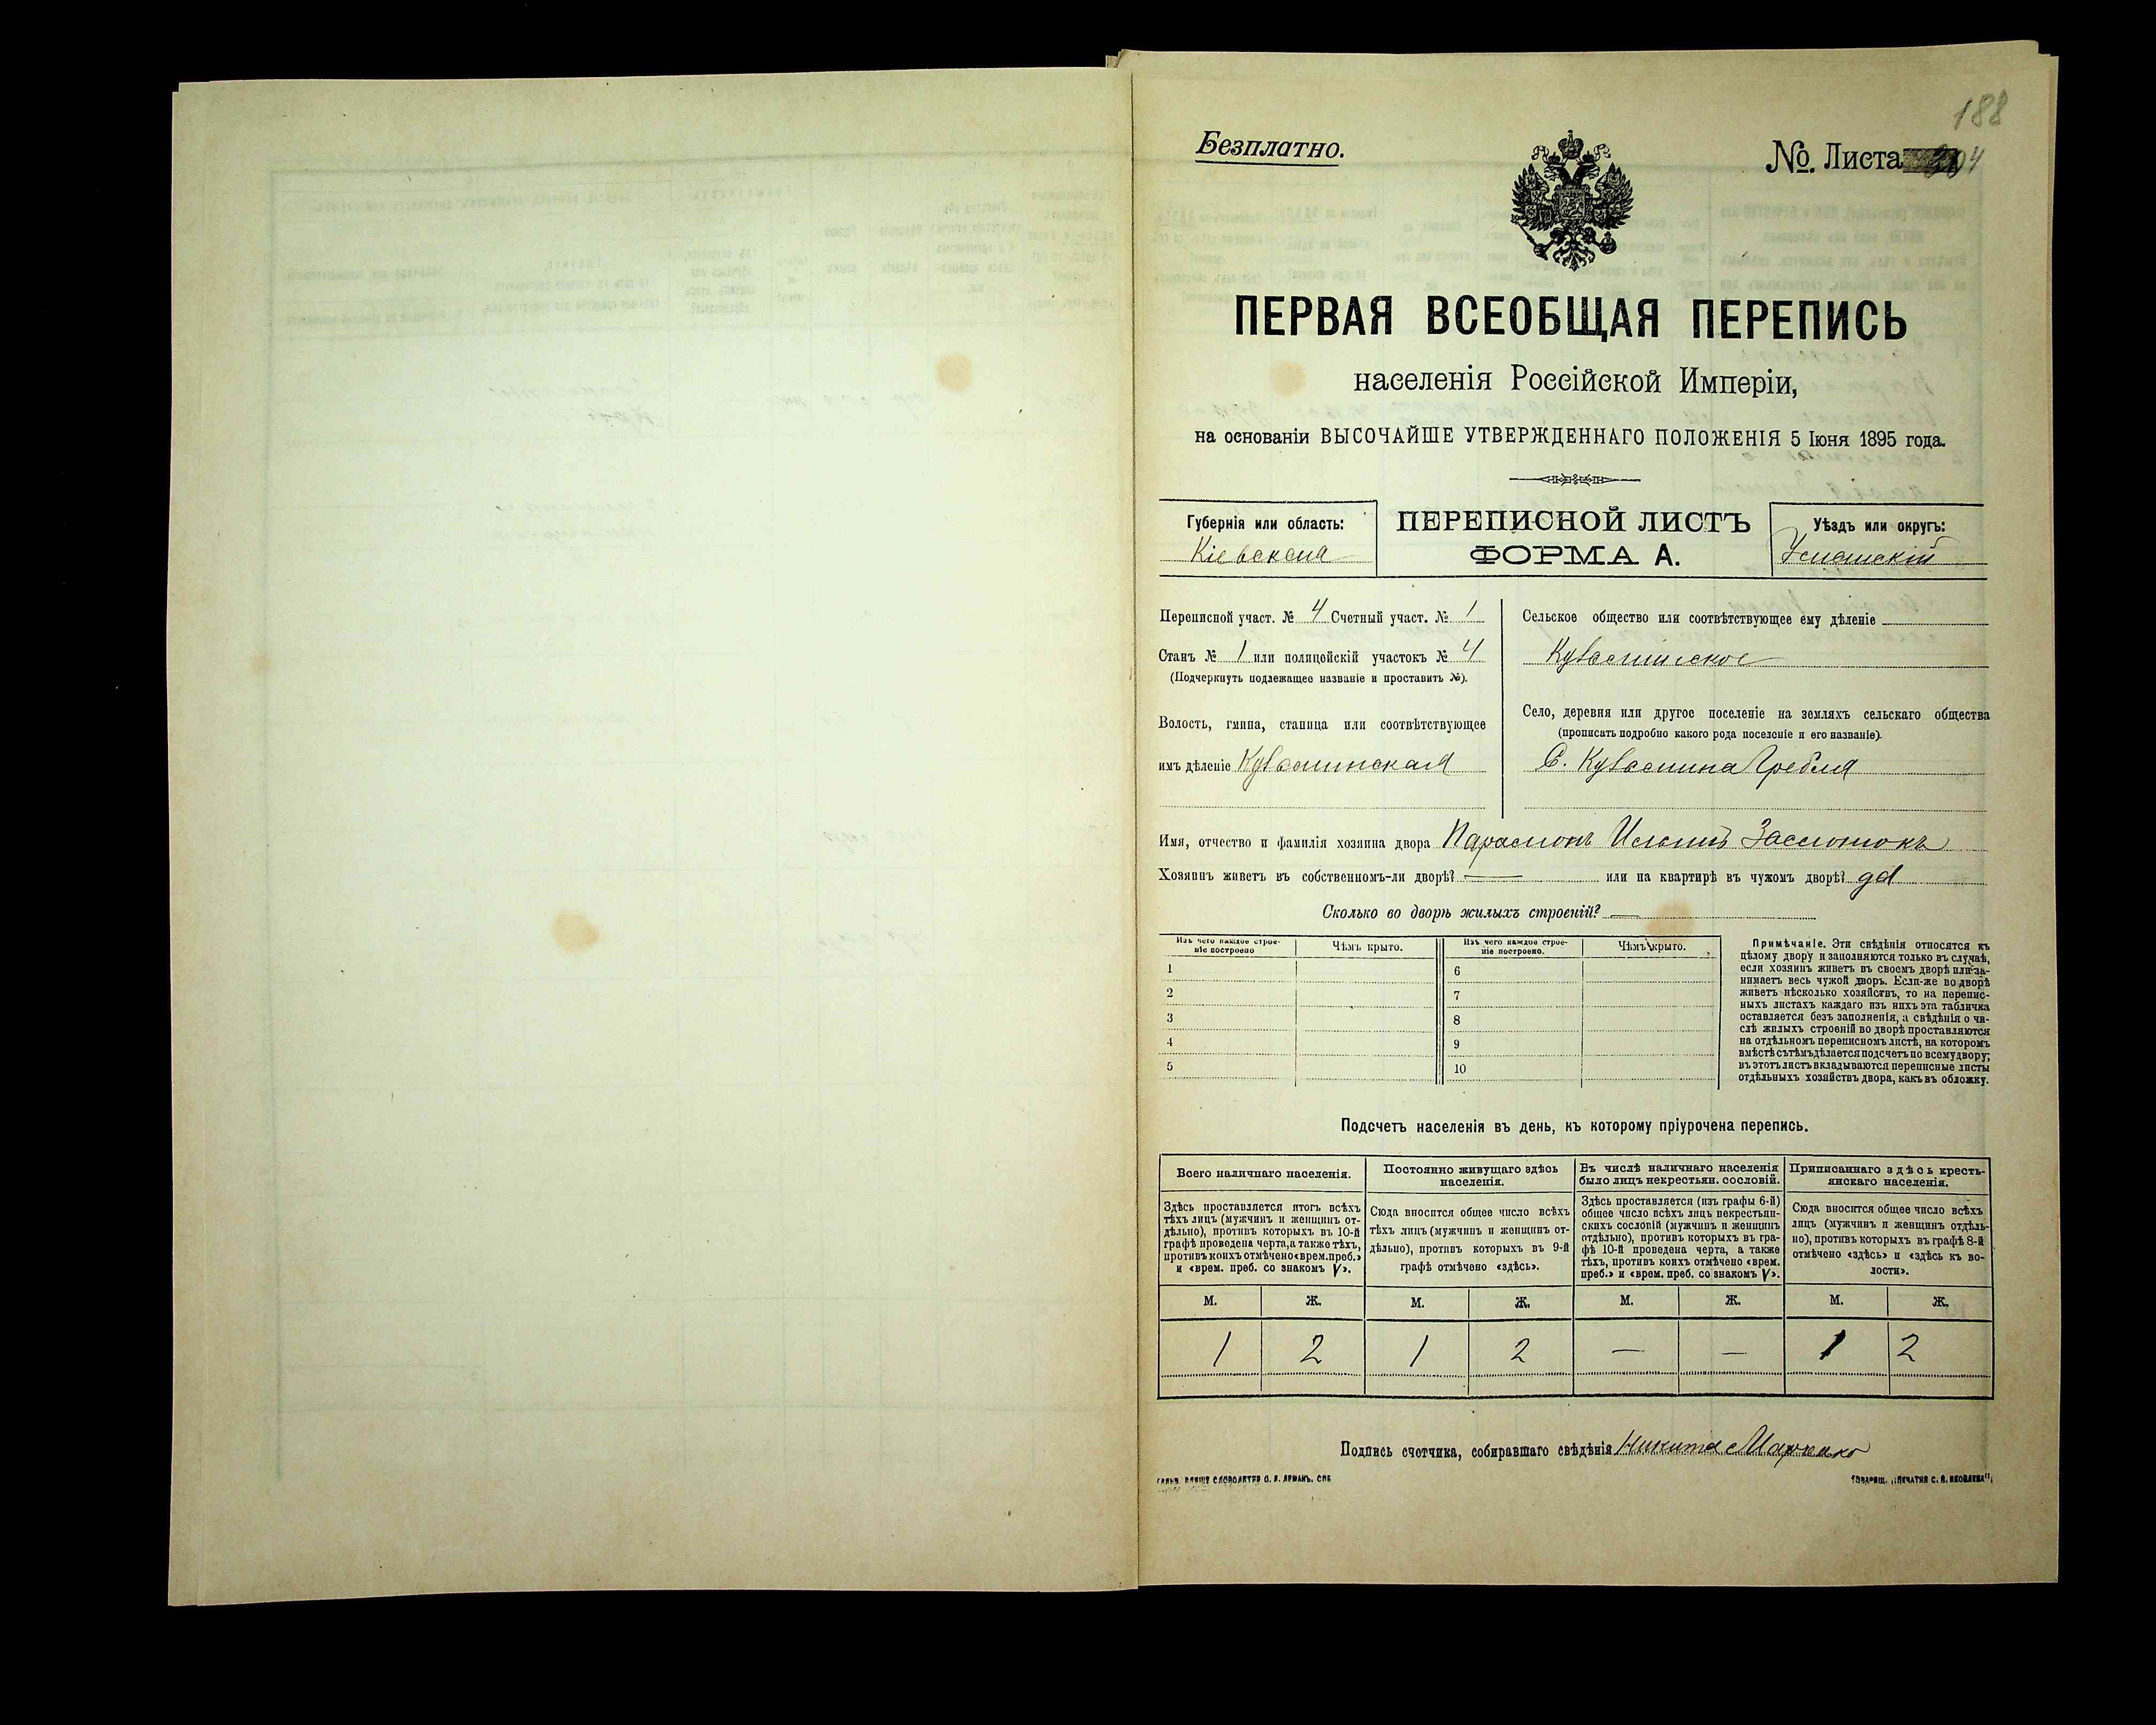 188
Безплатно.
№ Листа
ПЕРВАЯ ВСЕОБЩАЯ ПЕРЕПИСЬ
населенія Россійской Имперіи,
на основаніи ВЫСОЧАЙШЕ УТВЕРЖДЕННАГО ПОЛОЖЕНІЯ 5 Іюня 1895 года.
Губернія или область:
Кіевская
ПЕРЕПИСНОЙ ЛИСТЪ
ФОРМА А.
Уѣздъ или округъ:
Уманскій
Переписной участ. № 4 Счетный участ. № 1
Станъ № 1 или полицейскій участокъ № 4
(Подчеркнуть подлежащее названіе и проставить №).
Волость, гмина, станица или соотвѣтствующее
имъ дѣленіе
Сельское общество или соотвѣтствующее ему дѣленіе
Село, деревня или другое поселеніе на земляхъ сельскаго общества
(прописать подробно какого рода поселеніе и его названіе).
С. Гребля
Имя, отчество и фамилія хозяина двора Парамонъ Ильинъ
Хозяинъ живетъ въ собственномъ-ли дворѣ? — или на квартирѣ въ чужомъ дворѣ? да
Сколько во дворѣ жилыхъ строеній? —
Изъ чего каждое строе-
ніе построено
Чѣмъ крыто.
Изъ чего каждое строе-
ніе построено.
Чѣмъ крыто.
1
2
3
4
5
6
7
8
9
10
Примѣчаніе. Эти свѣдѣнія относятся къ
цѣлому двору и заполняются только въ случаѣ,
если хозяинъ живетъ въ своемъ дворѣ или за-
нимаетъ весь чужой дворъ. Если-же во дворѣ
живетъ нѣсколько хозяйствъ, то на перепис-
ныхъ листахъ каждаго изъ нихъ эта табличка
оставляется безъ заполненія, а свѣдѣнія о чи-
слѣ жилыхъ строеній во дворѣ проставляются
на отдѣльномъ переписномъ листѣ, на которомъ
вмѣстѣ съ тѣмъ дѣлается подсчетъ по всему двору;
въ этотъ листъ вкладываются переписные листы
отдѣльныхъ хозяйствъ двора, какъ въ обложку.
Подсчетъ населенія въ день, къ которому пріурочена перепись.
Всего наличнаго населенія.
Здѣсь проставляется итогъ всѣхъ
тѣхъ лицъ (мужчинъ и женщинъ от-
дѣльно), противъ которыхъ въ 10-й
графѣ проведена черта, а также тѣхъ,
противъ коихъ отмѣчено «врем. преб.»
и «врем. преб. со знакомъ V».
Постоянно живущаго здѣсь
населенія.
Сюда вносится общее число всѣхъ
тѣхъ лицъ (мужчинъ и женщинъ от-
дѣльно), противъ которыхъ въ 9-й
графѣ отмѣчено «здѣсь».
Въ числѣ наличнаго населенія
было лицъ некрестьян. сословій.
Здѣсь проставляется (изъ графы 6-й)
общее число всѣхъ лицъ некрестьян-
скихъ сословій (мужчинъ и женщинъ
отдѣльно), противъ которыхъ въ гра-
фѣ 10-й проведена черта, а также
тѣхъ, противъ коихъ отмѣчено «врем.
преб.» и «врем. преб. со знакомъ V».
Приписаннаго здѣсь кресть-
янскаго населенія.
Сюда вносится общее число всѣхъ
лицъ (мужчинъ и женщинъ отдѣль-
но), противъ которыхъ въ графѣ 8-й
отмѣчено «здѣсь» и «здѣсь къ во-
лости».
М. Ж. М. Ж. М. Ж. М. Ж.
1 2 1 2 — — 1 2
Подпись счетчика, собиравшаго свѣдѣнія Никита
ТОВАРИЩ. „ПЕЧАТНЯ С. П. ЯКОВЛЕВА“